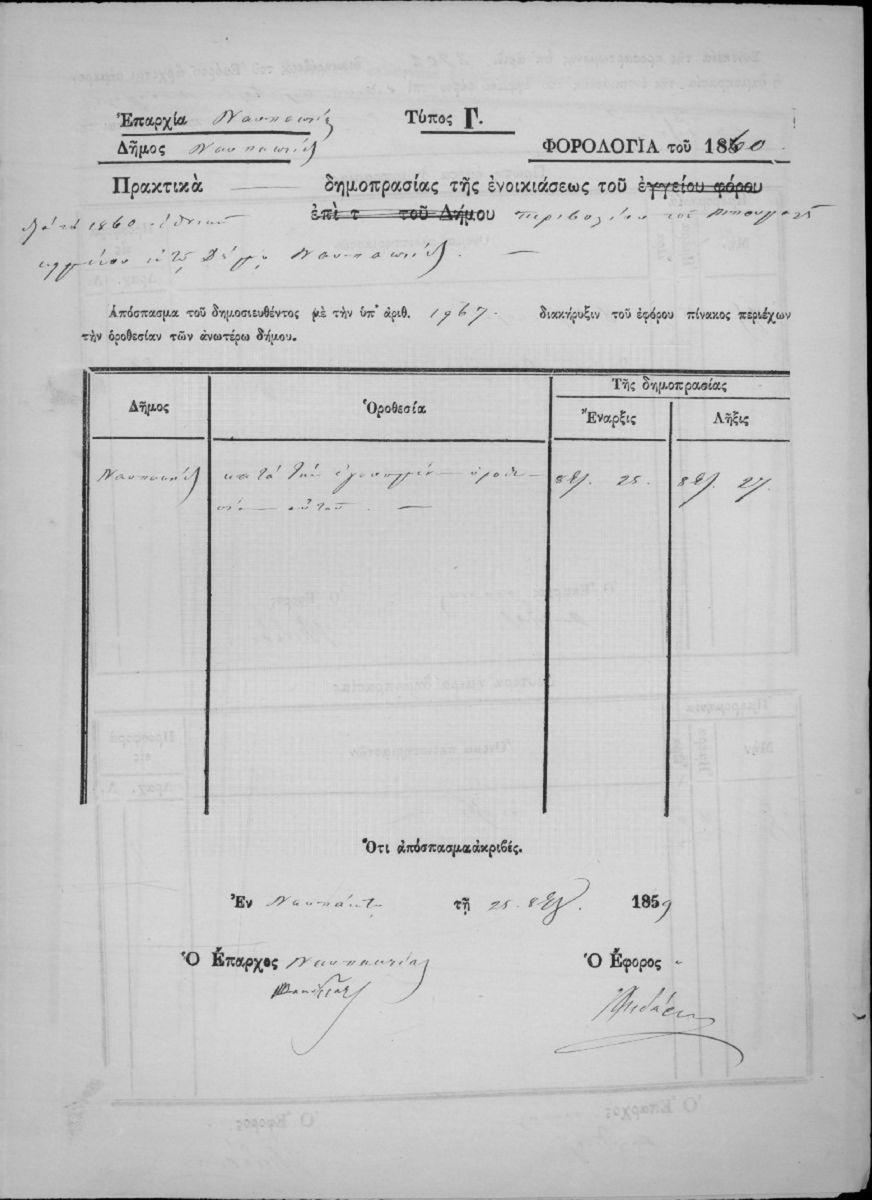 Ἐπαρχία Ναυπακτίας Τύπος Γ.
Δῆμος Ναυπακτίας ΦΟΡΟΛΟΓΙΑ τοῦ 1860.
Πρακτικὰ δημοπρασίας τῆς ἐνοικιάσεως τοῦ ἐγγείου φόρου
ἐπὶ τ τοῦ Δήμου περιβολείου τοῦ
διὰ τὸ 1860 ἐθνικοῦ
κειμένου εἰς τὸν Δῆμον Ναυπακτίας. —
Ἀπόσπασμα τοῦ δημοσιευθέντος μὲ τὴν ὑπ' ἀριθ. 1967. διακήρυξιν τοῦ ἐφόρου πίνακος περιέχων
τὴν ὁροθεσίαν τῶν ἀνωτέρω δήμου.
Τῆς δημοπρασίας
Δῆμος Ὁροθεσία Ἔναρξις Λῆξις
Ναυπακτίας κατὰ τὴν ὁροθε- 8βρ. 25. 8βρ. 27.
σίαν αὐτοῦ. —
Ὅτι ἀπόσπασμα ἀκριβές.
Ἐν Ναυπάκτῳ τῇ 25. 8βρ. 1859
Ὁ Ἔπαρχος Ναυπακτίας Ὁ Ἔφορος